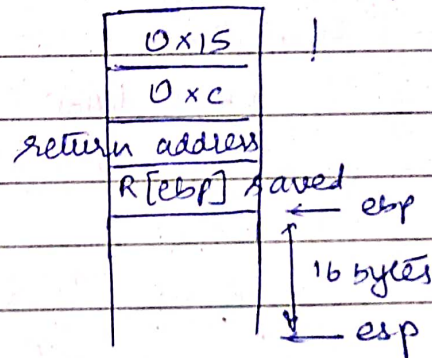 0x15 !
0xc
return address
R[ebp] saved
← ebp
16 bytes
← esp